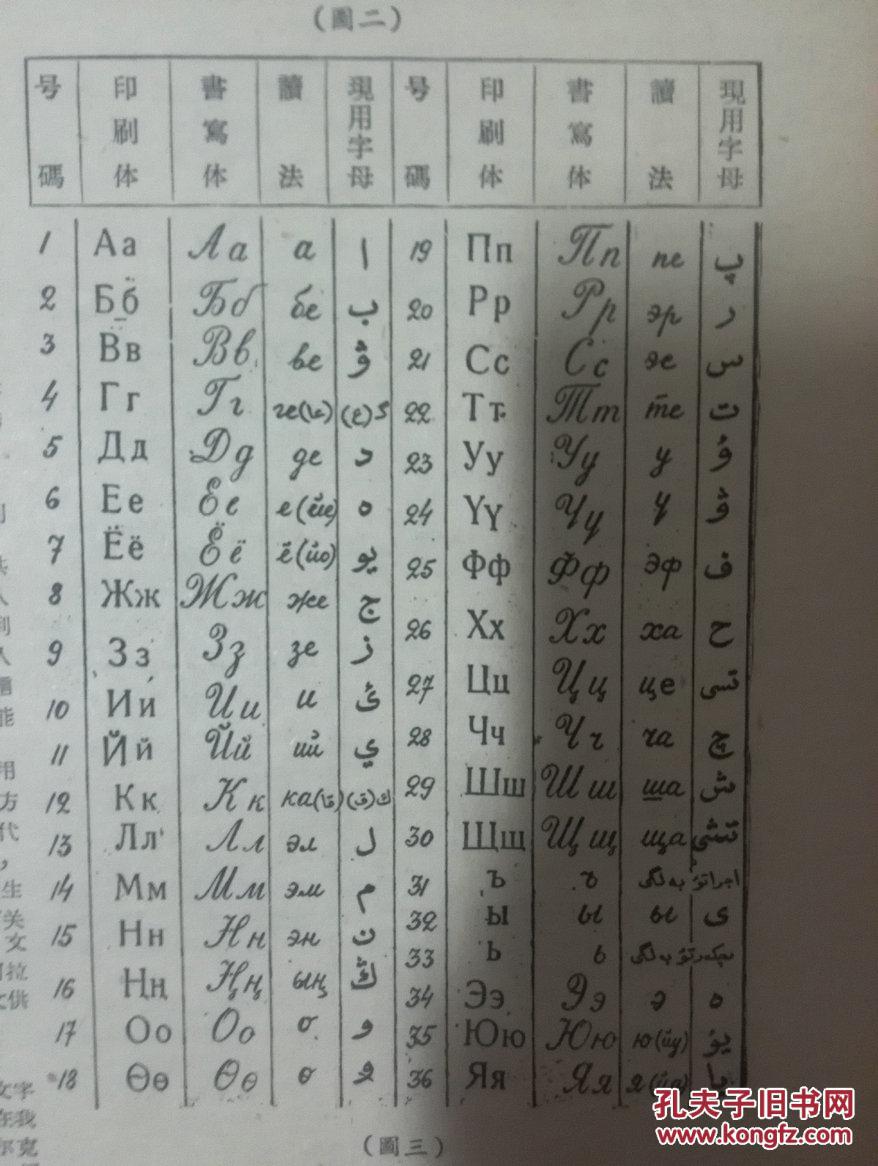 (圖二)
号碼 印刷体 書寫体 讀法 現用字母 号碼 印刷体 書寫体 讀法 現用字母
1 Аа Аа а ا 19 Пп Пп пе پ
2 Бб Бб бе ب 20 Рр Рр эр ر
3 Вв Вв ве ۋ 21 Сс Сс эс س
4 Гг Гг ге(عا) گ(ع) 22 Тт Тт те ت
5 Дд Дд де د 23 Уу Уу у ۇ
6 Ее Ее е(йе) ە 24 Үү Үү ү ۉ
7 Ёё Ёё ё(йо) يو 25 Фф Фф эф ف
8 Жж Жж же ج 26 Хх Хх ха ح
9 Зз Зз зе ز 27 Цц Цц це تسى
10 Ии Ии и ئ 28 Чч Чч ча چ
11 Йй Йй ий ي 29 Шш Шш ша ش
12 Кк Кк ка(قا) ك(ق) 30 Щщ Щщ ща تشى
13 Лл Лл эл ل 31 ъ ъ
14 Мм Мм эм م 32 ы ы ы ى
15 Нн Нн эн ن 33 ь ь
16 Ңң Ңң ың ڭ 34 Ээ Ээ э ە
17 Оо Оо о و 35 Юю Юю ю(йу) يۇ
18 Өө Өө ө 36 Яя Яя я(йа) يا
(圖三)
用
方
代
生
关
文
文供
文字
在我
尔克
孔夫子旧书网
www.kongfz.com